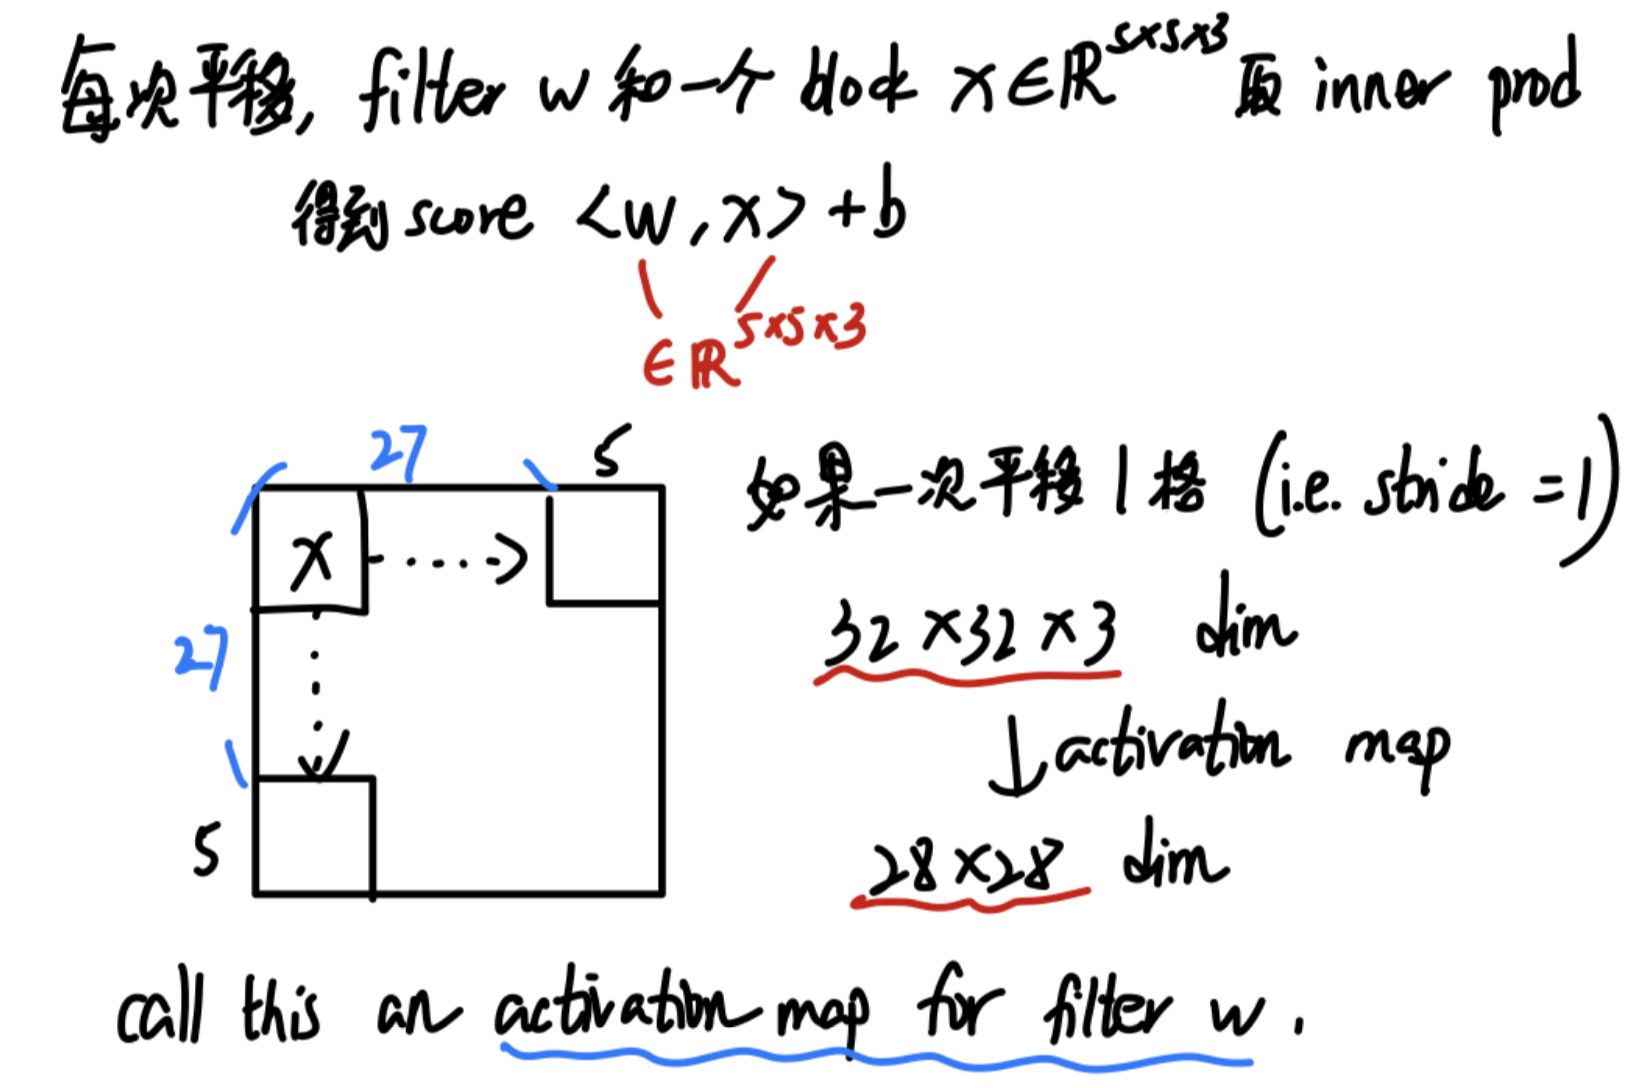 每次平移, filter w 和一个 block x∈ℝ^{5×5×3} 取 inner prod
得到 score <w, x> + b
∈ℝ^{5×5×3}
27 5
如果一次平移1格 (i.e. stride =1)
x
32×32×3 dim
27
↓ activation map
5
28×28 dim
call this an activation map for filter w.